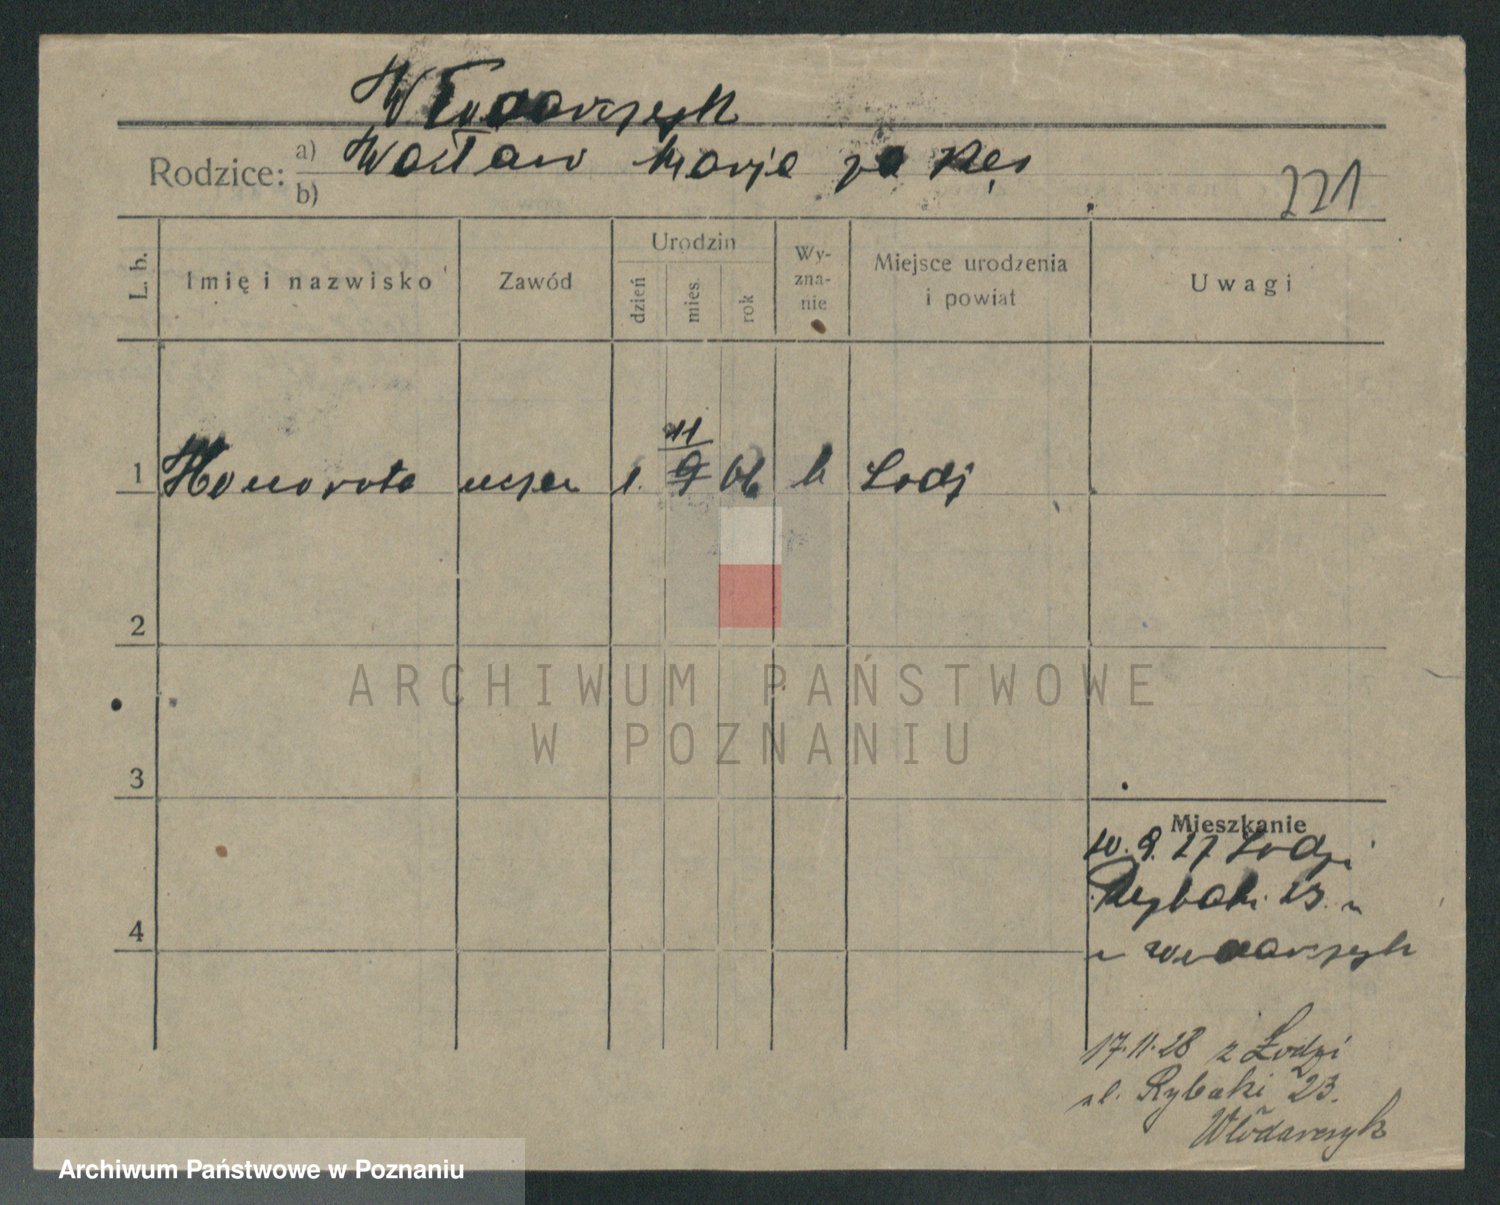 Włodarczyk
Rodzice: a) Wacław Marja
b)
221
L. b.
Imię i nazwisko
Zawód
Urodzin
dzień
mies.
rok
Wy-
zna-
nie
Miejsce urodzenia
i powiat
Uwagi
11
1 Honorata 1. 9 06 k Lodz
2
ARCHIWUM PAŃSTWOWE
W POZNANIU
3
Mieszkanie
10. 9. 27 Lodzi
Rybaki 23.
4
17.11.28 z Łodzi
ul. Rybaki 23.
Włodarczyk
Archiwum Państwowe w Poznaniu